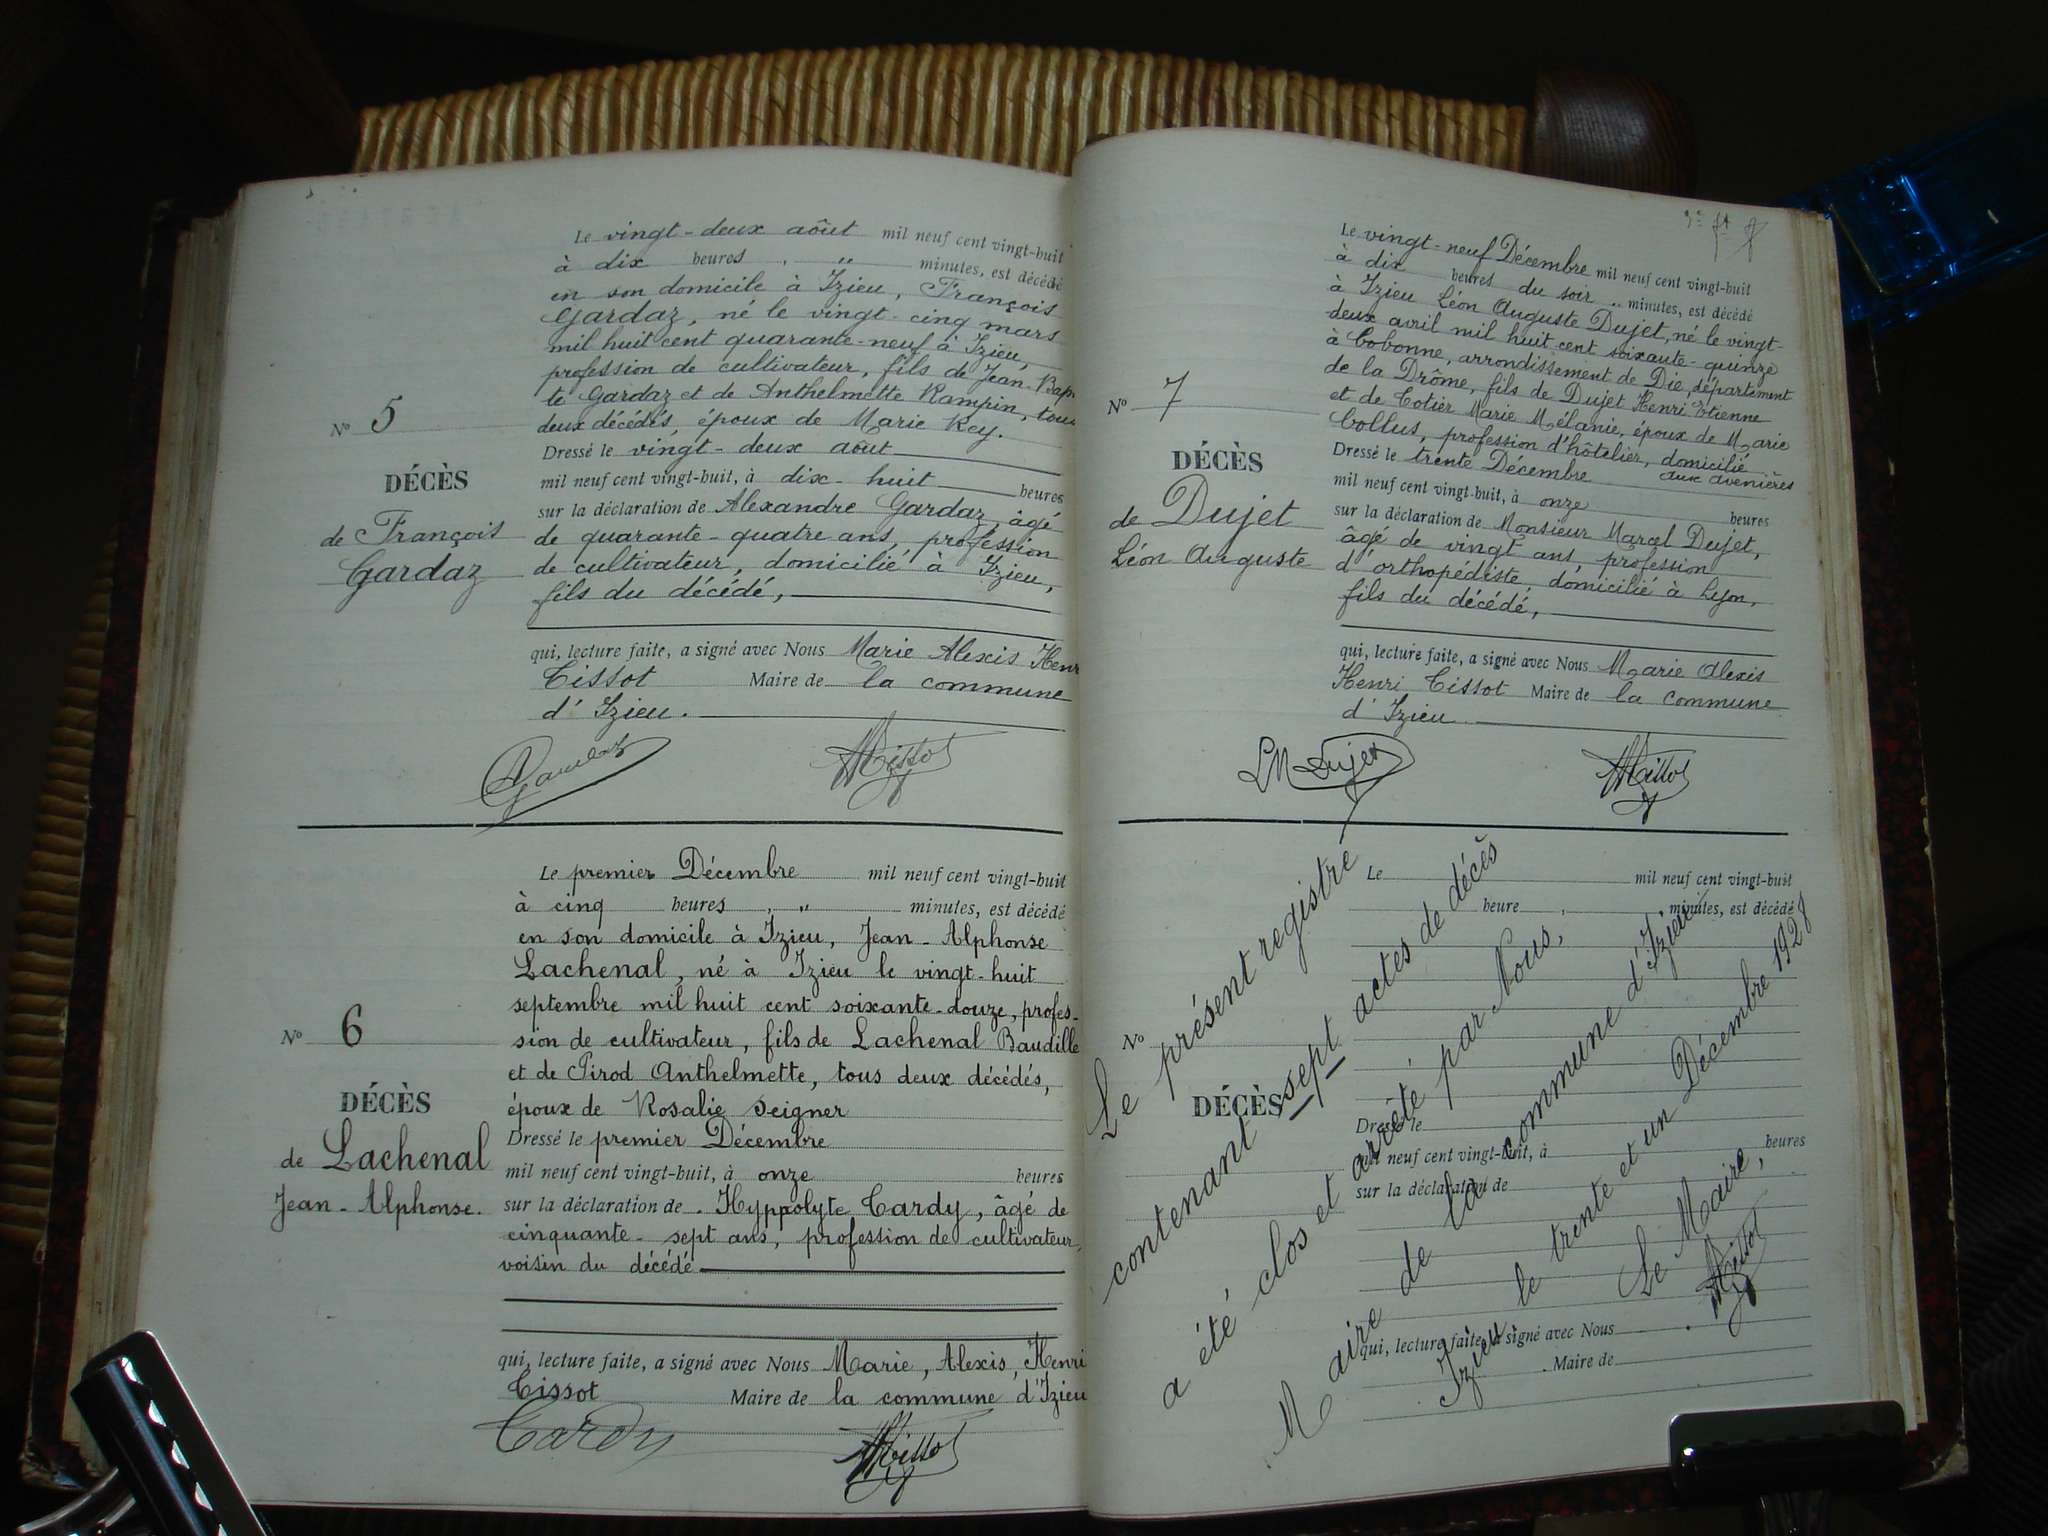 Le vingt-deux aôut mil neuf cent vingt-huit
à dix heures , " minutes, est décédé
en son domicile à Izieu, François
Gardaz, né le vingt-cinq mars
mil huit cent quarante-neuf à Izieu,
profession de cultivateur, fils de Jean-Bap
te Gardaz et de Anthelmette Rampin, tous
deux décédés, époux de Marie Rey.
Dressé le vingt-deux aôut
mil neuf cent vingt-huit, à dix-huit heures
sur la déclaration de Alexandre Gardaz, âgé
de quarante-quatre ans, profession
de cultivateur, domicilié à Izieu,
fils du décédé,
qui, lecture faite, a signé avec Nous Marie Alexis Henri
Tissot Maire de la commune
d'Izieu.
No 5
DÉCÈS
de François
Gardaz
Gardaz
Tissot
Le premier Décembre mil neuf cent vingt-huit
à cinq heures , " minutes, est décédé
en son domicile à Izieu, Jean-Alphonse
Lachenal, né à Izieu le vingt-huit
septembre mil huit cent soixante-douze, profes-
sion de cultivateur, fils de Lachenal Baudille
et de Pirod Anthelmette, tous deux décédés,
époux de Rosalie Seigner
Dressé le premier Décembre
mil neuf cent vingt-huit, à onze heures
sur la déclaration de Hyppolyte Cardy, âgé de
cinquante-sept ans, profession de cultivateur,
voisin du décédé
qui, lecture faite, a signé avec Nous Marie, Alexis, Henri
Tissot Maire de la commune d'Izieu
No 6
DÉCÈS
de Lachenal
Jean-Alphonse.
Cardy
Tissot
Le vingt-neuf Décembre mil neuf cent vingt-huit
à dix heures du soir " minutes, est décédé
à Izieu Léon Auguste Dujet, né le vingt-
deux avril mil huit cent soixante-quinze
à Cobonne, arrondissement de Die, département
de la Drôme, fils de Dujet Henri Etienne
et de Cotier Marie Mélanie, époux de Marie
Collus, profession d'hôtelier, domicilié
aux avenières
Dressé le trente Décembre
mil neuf cent vingt-huit, à onze heures
sur la déclaration de Monsieur Marcel Dujet,
âgé de vingt ans, profession
d'orthopédiste, domicilié à Lyon,
fils du décédé,
qui, lecture faite, a signé avec Nous Marie Alexis
Henri Tissot Maire de la commune
d'Izieu
No 7
DÉCÈS
de Dujet
Léon Auguste
LM Dujet
Tissot
Le mil neuf cent vingt-huit
heure , minutes, est décédé
No
DÉCÈS
Dressé le
mil neuf cent vingt-huit, à heures
sur la déclaration de
qui, lecture faite, a signé avec Nous
Maire de
Le présent registre
contenant sept actes de décès
a été clos et arrêté par Nous,
Maire de la commune d'Izieu
Izieu, le trente et un Décembre 1928
Le Maire,
Tissot